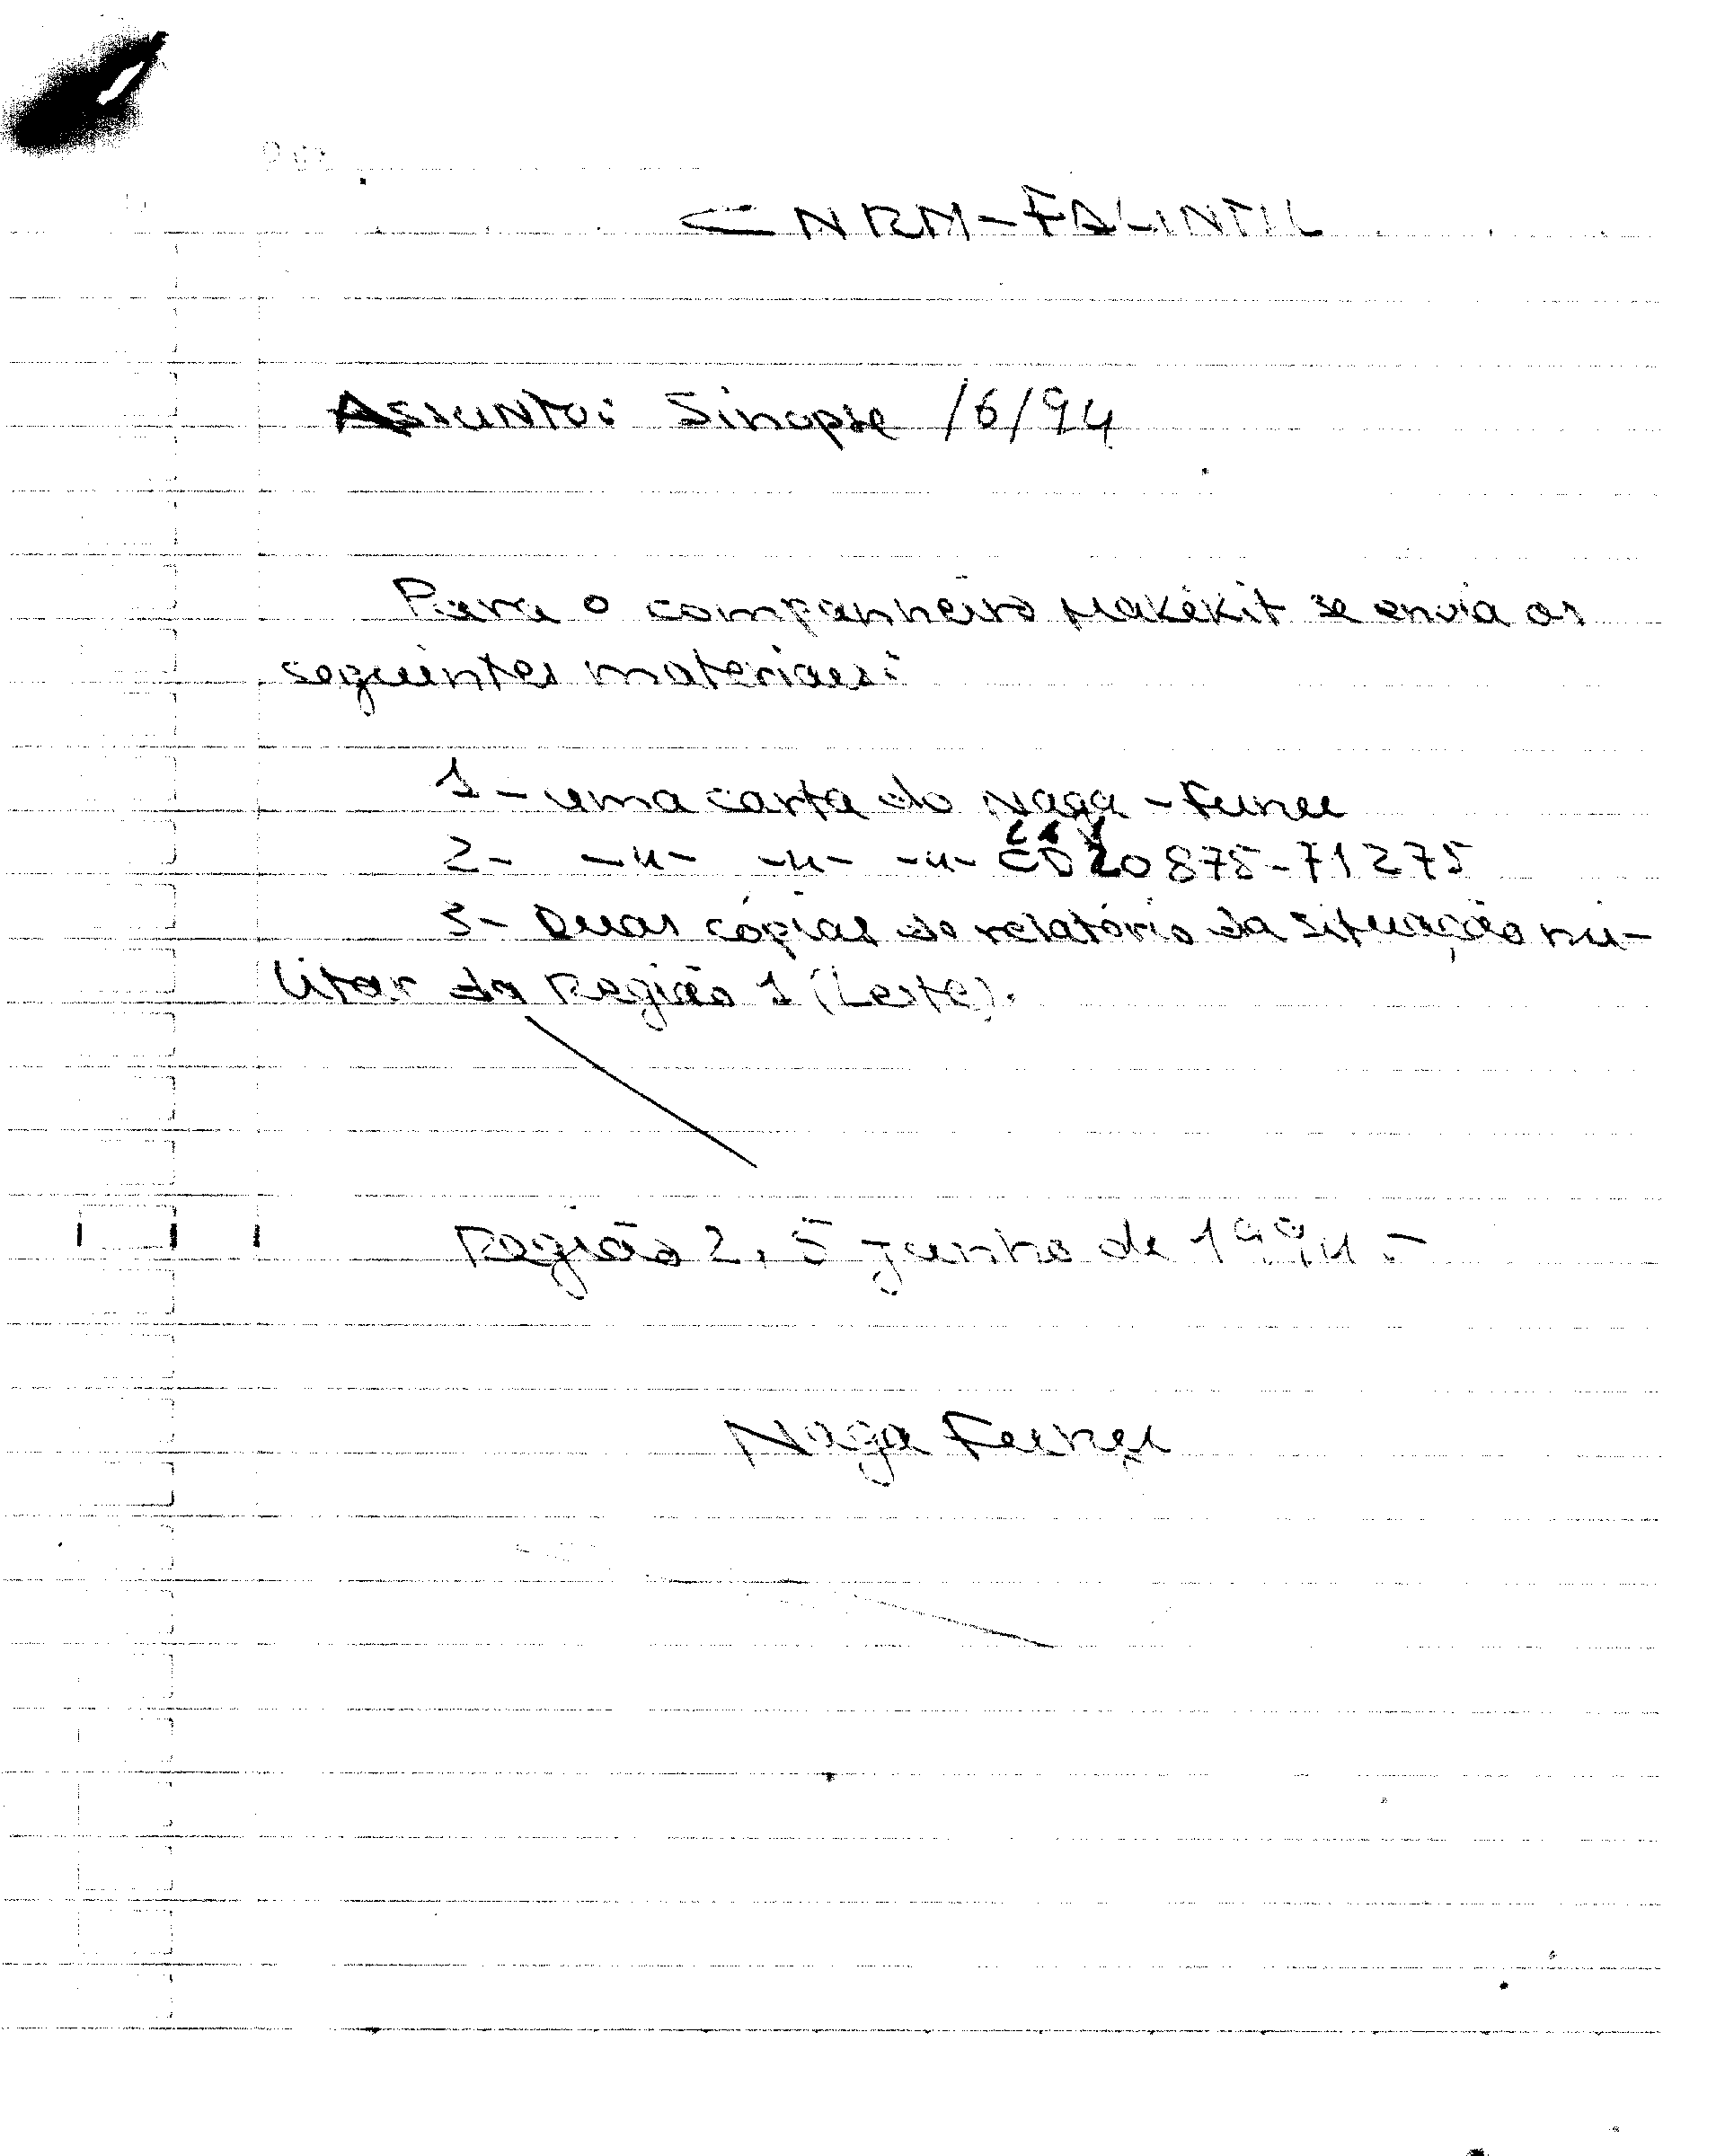 CNRM-FALINTIL
Assunto: Sinopse /6/94
Para o companheiro Makèkit se envia os
seguintes materiaes:
1 - uma carta do Naga - Funu
2 - -"- -"- -"- 20875-71275
3 - Duas cópias do relatório da situação mi-
litar da Região 1 (Leste).
Região 2, 5 junho de 1994 -
Naga